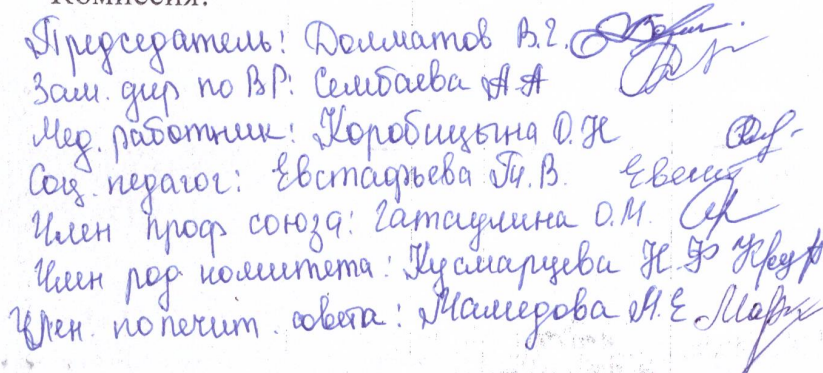 Комиссия:
Председатель: Долматов В.Г.
Зам. дир по ВР: Сембаева А А
Мед. работник: Коробицына О.Н
Соц. педагог: Евстафьева Т.В.
Член проф союза: Гатаулина О.М.
Член род комитета: Кусмарцева Н.Ф
Член. попечит. совета: Мамедова М.Е